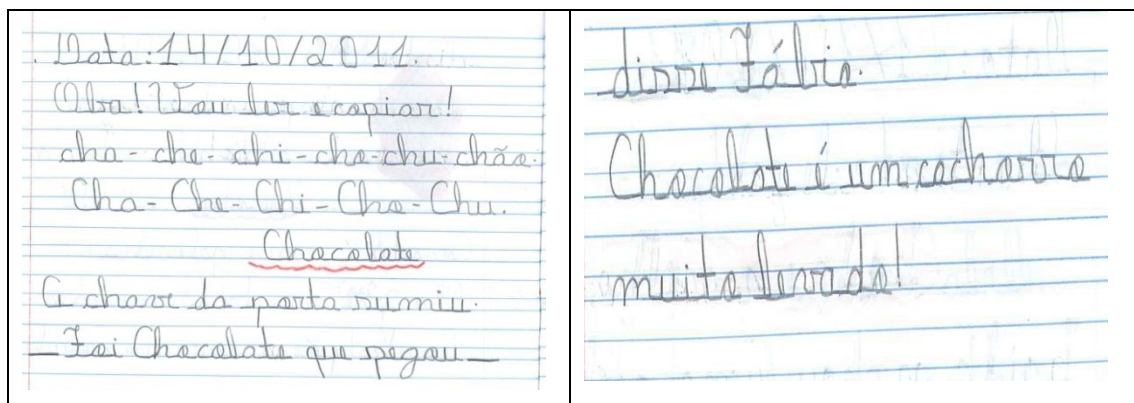 Data: 14/10/2011.
Oba! Vou ler e copiar!
cha - che - chi - cho - chu - chão.
Cha - Che - Chi - Cho - Chu.
Chocolate
A chave da porta sumiu.
_ Foi Chocolate que pegou _
disse Fábio.
Chocolate é um cachorro
muito levado!